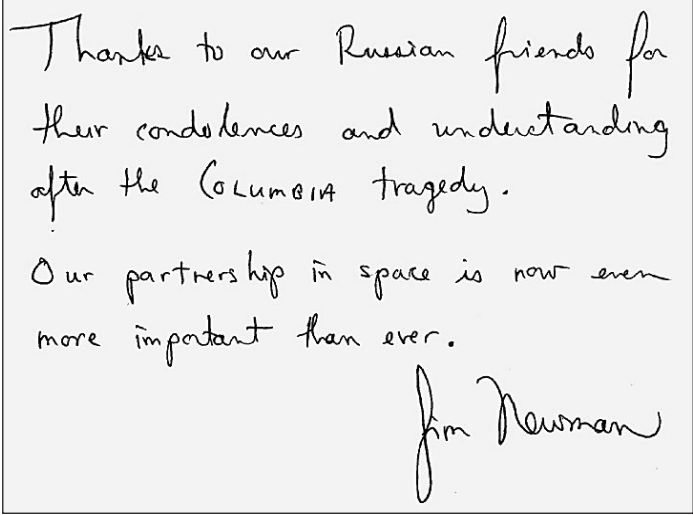 Thanks to our Russian friends for
their condolences and understanding
after the COLUMBIA tragedy.
Our partnership in space is now even
more important than ever.
Jim Newman